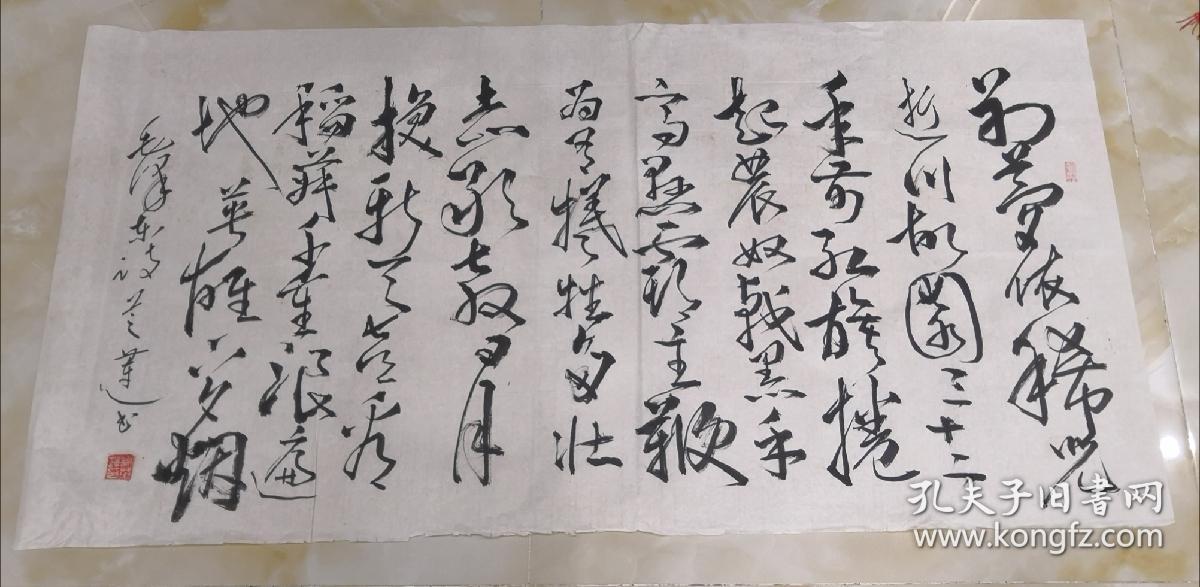 别梦依稀咒
逝川故園三十二
年前红旗捲
起農奴戟黑手
高悬霸主鞭
为有犧牲多壮
志敢教日月
换新天喜看
稻菽千重浪遍
地英雄下夕烟
毛泽东诗
孔夫子旧书网
www.kongfz.com